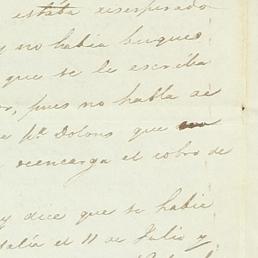 estaba desesperado
y no habia buques
que se le escriba
or, pues no habla de
e pr. Dolons que
reencarga el cobro de
y dice que se habie
salia el 11 de Julio y